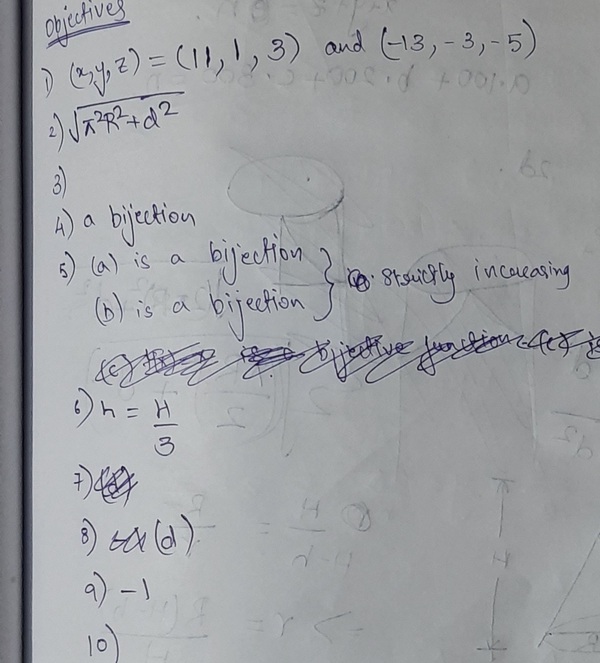 Objectives
1) (x,y,z) = (11, 1, 3) and (-13, -3, -5)
2) √π²R²+d²
3)
4) a bijection
5) (a) is a bijection
(b) is a bijection } strictly increasing
bijective function
6) h = H/3
7)
8) (d)
9) -1
10)